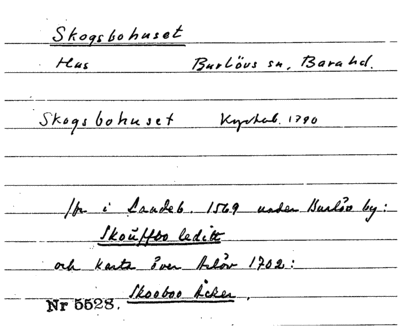 Skogsbohuset
Hus Burlövs sn, Bara hd.
Skogsbohuset Kyrkob. 1790
Jfr i Landeb. 1569 under Burlöv by:
Skouffbo leditt
och karta över Arlöv 1702:
Skooboo Åcker.
Nr 5528.